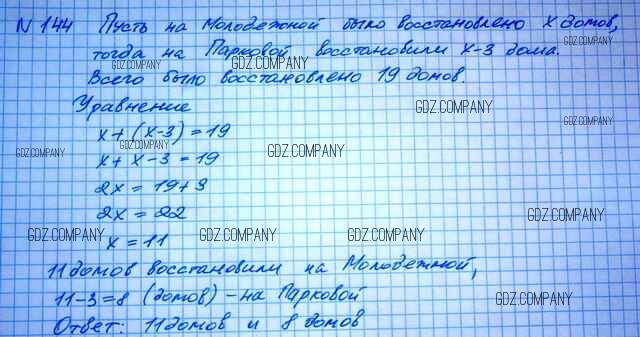 N 144 Пусть на Молодежной было восстановлено x домов,
тогда на Парковой восстановили x-3 дома.
GDZ.COMPANY GDZ.COMPANY GDZ.COMPANY
Всего было восстановлено 19 домов.
Уравнение
GDZ.COMPANY
x+(x-3)=19
GDZ.COMPANY
GDZ.COMPANY GDZ.COMPANY GDZ.COMPANY
x+x-3=19
2x=19+3
2x=22
GDZ.COMPANY
GDZ.COMPANY GDZ.COMPANY GDZ.COMPANY
x=11
11 домов восстановили на Молодежной,
11-3=8 (домов) - на Парковой
GDZ.COMPANY
Ответ: 11 домов и 8 домов